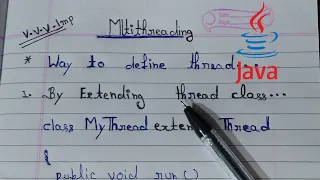 V.V.V.Imp
Mltithreading
* Way to define thread
Java
1. By Extending thread class...
class MyThread extend Thread
{
public void run()